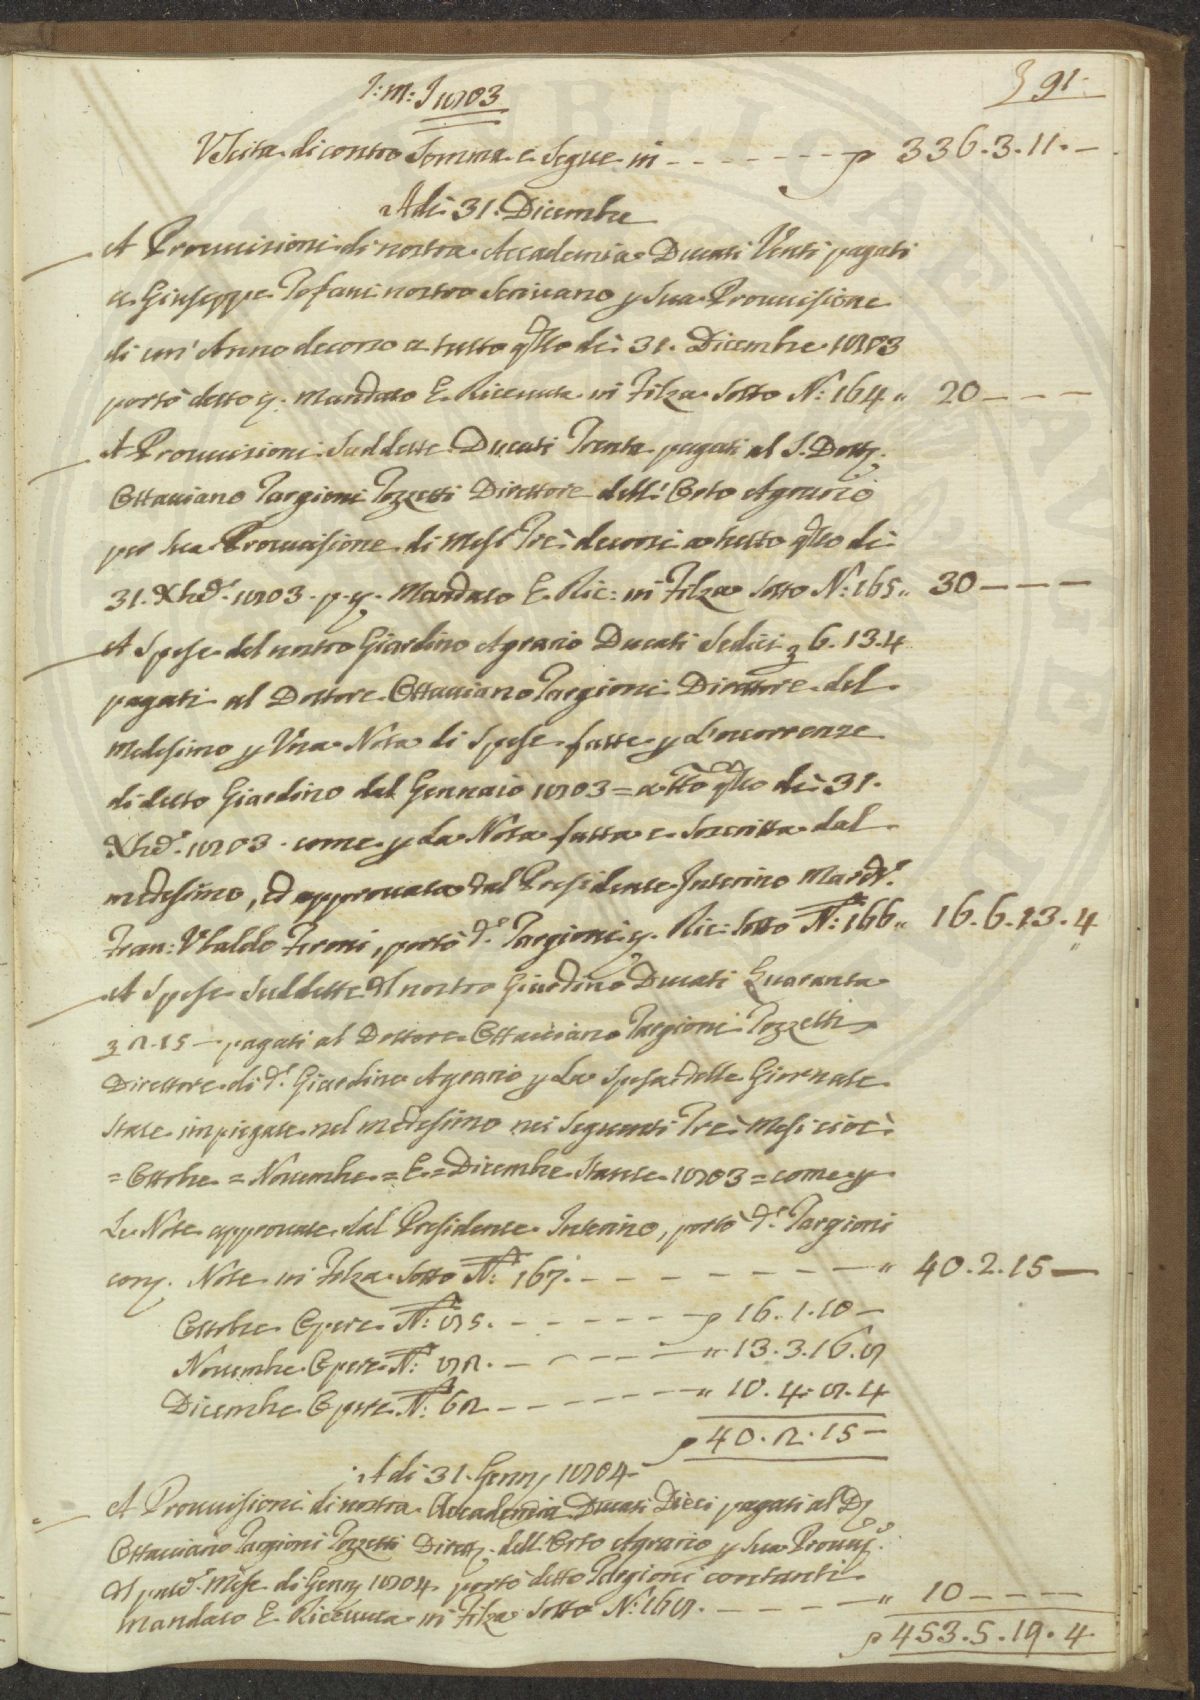 J: M: J 1803
391
Uscita di contro Somma e Segue in - - - - - - - p 336.3.11.-
A dì 31. Dicembre
A Provvisioni di nostra Accademia Ducati Venti pagati
a Giuseppe Tofani nostro Scrivano p Sua Provvisione
di un' Anno decorso a tutto qsto dì 31. Dicembre 1803
portò detto p. Mandato E. Ricevuta in Filza Sotto N: 164 " 20 - - -
A Provvisioni Suddette Ducati Trenta pagati al S. Dott.
Ottaviano Targioni Tozzetti Direttore dell' Orto Agrario
per sua Provvisione di Mesi Trè decorsi a tutto qsto dì
31. Xbre. 1803. p. p. Mandato E. Ric: in Filza Sotto N: 165 " 30 - - -
A Spese del nostro Giardino Agrario Ducati Sedici 3 6.13.4
pagati al Dottore Ottaviano Targioni Direttore del
Medesimo p Una Nota di Spese fatte p l'occorrenze
di detto Giardino dal Gennaio 1803 = a tto qsto dì 31.
Xbre. 1803. come p La Nota fatta e Soscritta dal
medesimo, ed approvata dal Presidente Interino March.
Fran: Ubaldo Feroni, portò do. Targioni p. Ric: sotto N: 166 " 16.6.13.4
A Spese Suddette del nostro Giardino Ducati Quaranta
3 2.15 - pagati al Dottore Ottaviano Targioni Tozzetti
Direttore di do. Giardino Agrario p La Spesa delle Giornate
State impiegate nel medesimo nei Seguenti Trè Mesi cioè
= Ottobre = Novembre = E = Dicembre Stante 1803 = come p
Le Note approvate dal Presidente Interino, portò do. Targioni
con p. Note in Filza Sotto N: 167. - - - - - - - " 40.2.15 -
Ottobre Opere N: 85. - - - - - p 16.1.10 -
Novembre Opere N: 82. - - - - " 13.3.16.8
Dicembre Opere N: 62 - - - - - " 10.4.8.4
p 40.2.15 -
A dì 31. Genn 1804
A Provvisioni di nostra Accademia Ducati Dieci pagati al D
Ottaviano Targioni Tozzetti Dirett. dell' Orto Agrario p Sua Provv.
del pnte. Mese di Genn 1804 portò detto Targioni contanti
Mandato E. Ricevuta in Filza Sotto N: 168. - - - - - " 10 - - -
p 453.5.19.4